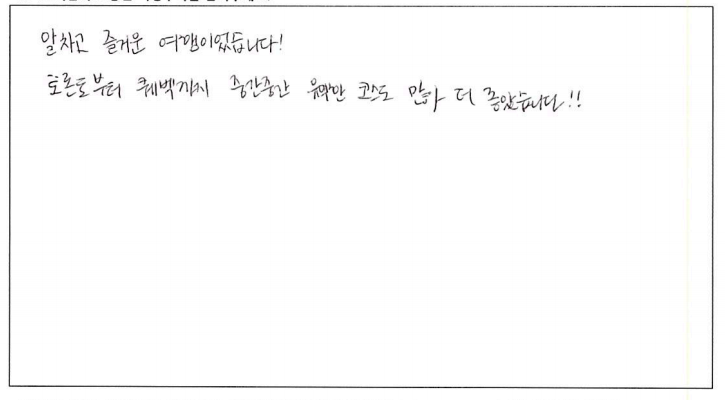 알차고 즐거운 여행이었습니다!
토론토부터 퀘벡까지 중간중간 유명한 코스도 많아 더 좋았습니다!!